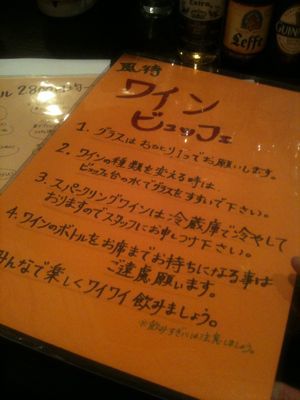 風待
ワイン
ビュッフェ
1. グラスはおひとり1つでお願いします。
2. ワインの種類を変える時は、
ビュッフェ台の水でグラスをすすいで下さい。
3. スパークリングワインは冷蔵庫で冷やして
おりますのでスタッフにお申しつけ下さい。
4. ワインのボトルをお席までお持ちになる事は
ご遠慮願います。
みんなで楽しくワイワイ飲みましょう。
※飲みすぎには注意しましょう。
Leffe